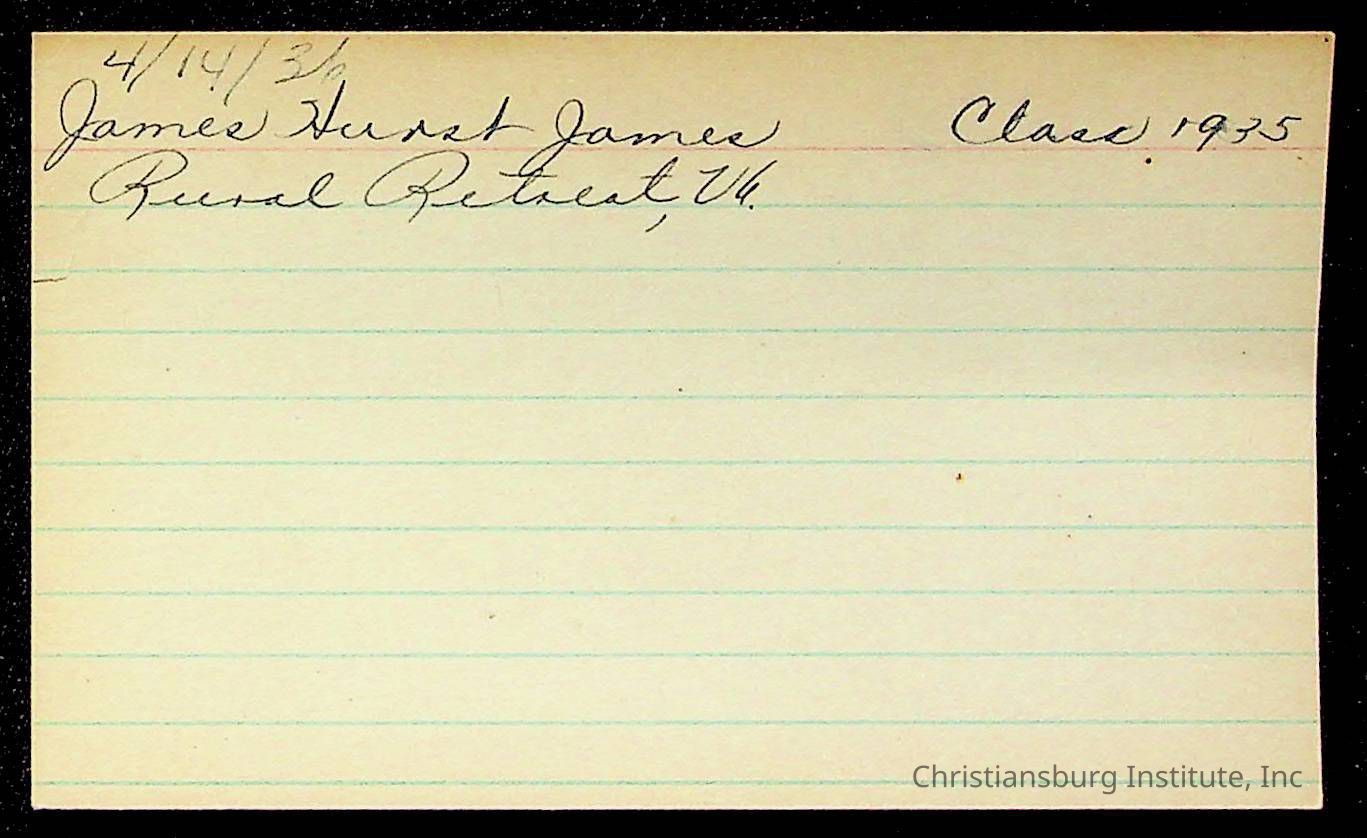 4/14/36
James Hurst James Class 1935
Rural Retreat, Va.
Christiansburg Institute, Inc